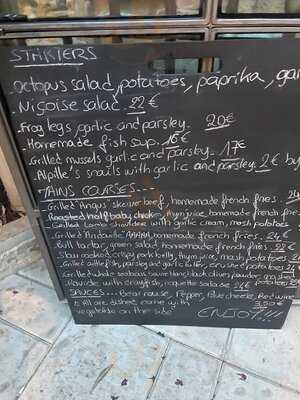 STARTERS
Octopus salad, potatoes, paprika,
Niçoise salad 22€
Frog legs, garlic and parsley. 20€
Homemade fish sup. 16€
Grilled mussels garlic and parsley. 17€
Alpille's snails with garlic and parsley. 2€ by
MAINS COURSES
Grilled Angus skewer beef, homemade french fries. 24
Roasted half baby chicken, thym juice, homemade french fries
Grilled Lamb shoulder with garlic cream, mash potatoes
Grilled Andouille AAAAA, homemade french fries. 24€
Bull tartar, green salad, homemade french fries. 22€
Slow cooked crispy pork belly, thym juice, mash potatoes
Grilled cuttle fish, parsley and garlic butter, crushed potatoes
Grilled whole seabass, beurre blanc, black olives powder, mashed
with crayfish, roquette salade 24€
SAUCES... Bearnaise, Pepper, Blue cheese, Red wine
All our dishes come with 3,50€
vegetable on the side ENJOY!!!